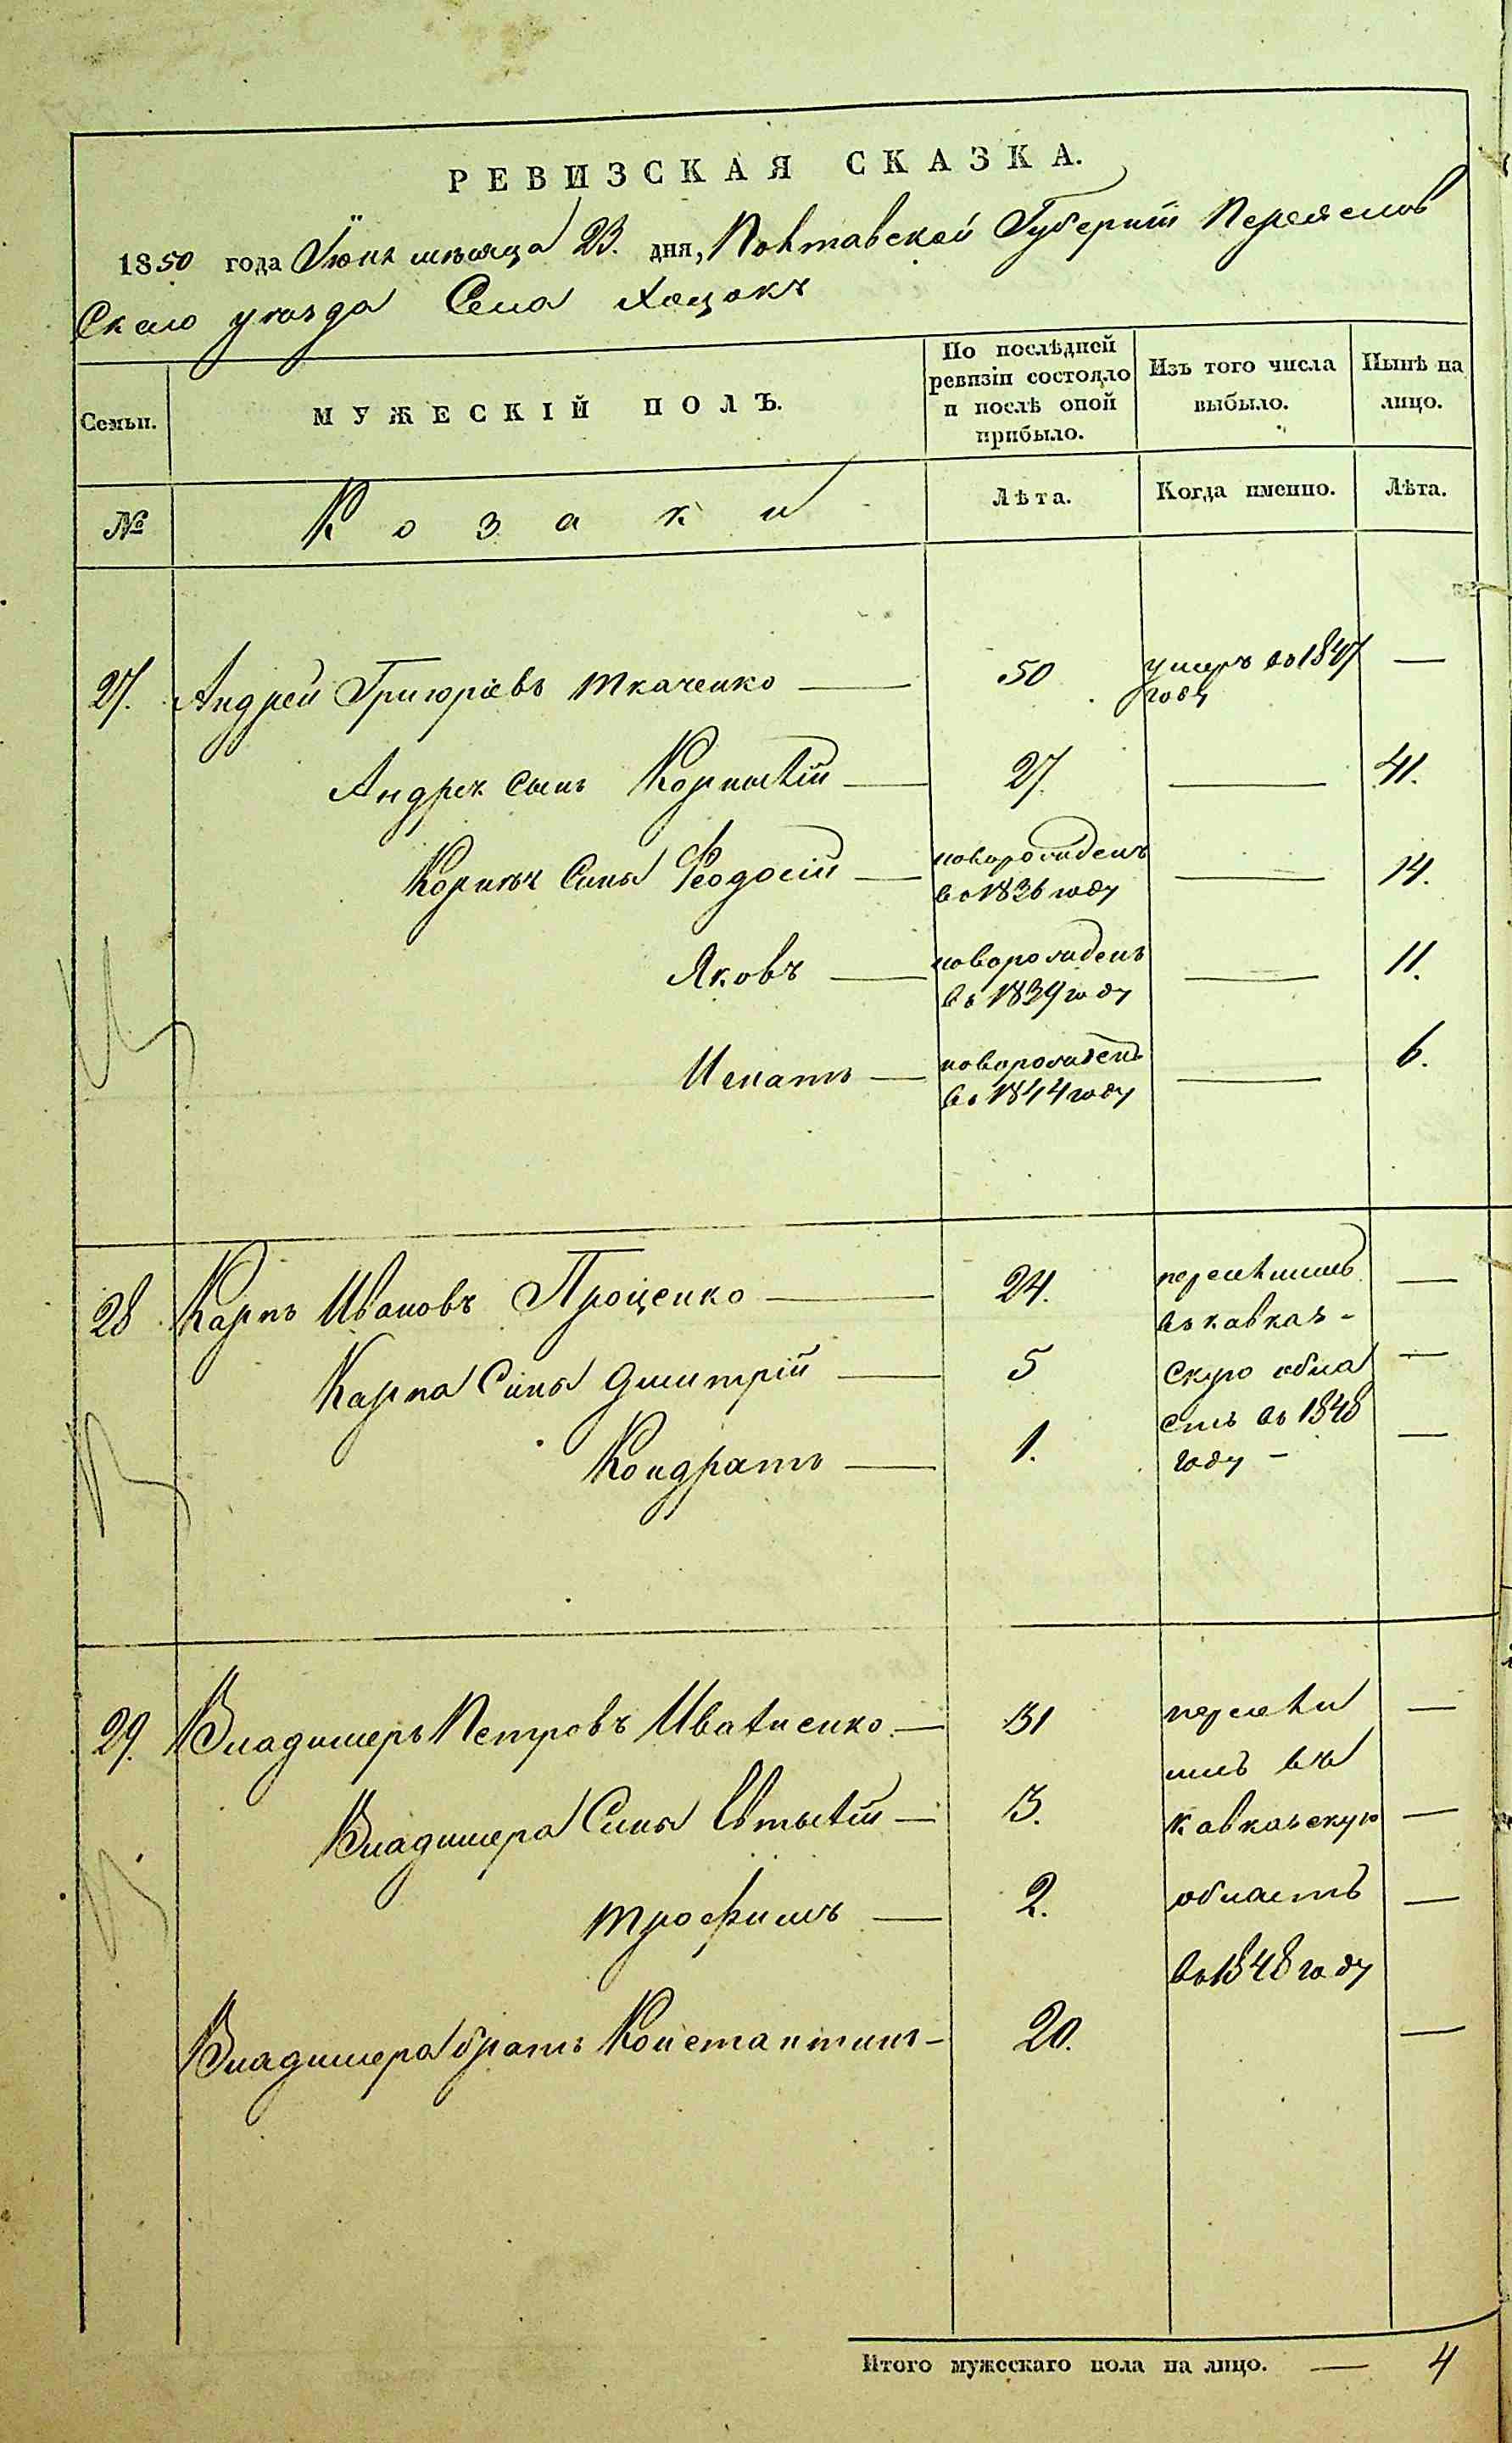 РЕВИЗСКАЯ СКАЗКА.
1850 года Іюня мѣсяца 23. дня, Полтавской Губерніи Переяслов
Скаго уѣзда Села Хоцокъ
Семьи.
МУЖЕСКІЙ ПОЛЪ.
По послѣдней
ревизіи состояло
и послѣ оной
прибыло.
Изъ того числа
выбыло.
Нынѣ на
лицо.
№
Козаки
Лѣта.
Когда именно.
Лѣта.
27. Андрей Григоріевъ Ткаченко — 50 умеръ въ 1847 —
году
Андрея Сынъ Корнилій — 27. — 41.
Корнѣя Сины Феодосій — новорожденъ — 14.
въ 1836 году
Яковъ — новорожденъ — 11.
въ 1839 году
Игнатъ — новорожденъ — 6.
въ 1844 году
28 Карпъ Ивановъ Проценко — 24. переселились —
въ кавказ-
Карпа Сины Дмитрій — 5 скую обла —
Кондратъ — 1. сть въ 1848 —
году –
29. Владимеръ Петровъ Иваненко. — 31 пересели —
лись въ
Владимера Сины Евтихій — 3. кавказскую —
Трофимъ — 2. область —
въ 1848 году
Владимера братъ Константинъ – 20. —
Итого мужескаго пола на лицо. — 4